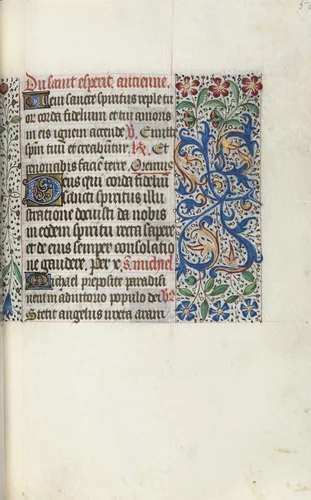 Du saint esperit antienne.
Veni sancte spiritus reple tu
or corda fidelium et tui amoris
in eis ignem accende V. Emitte
spm tuu et creabutur. R. Et
renovabis facie terre. Oremus
Deus qui corda fideliu
sancti spiritus illu
stratione docuisti da nobis
in eodem spiritu recta sapere
et de eius semper consolatio
ne gaudere. per x. S. michiel
Michael preposite paradisi
veni in adiutorio populo dei V
Stetit angelus iuxta aram